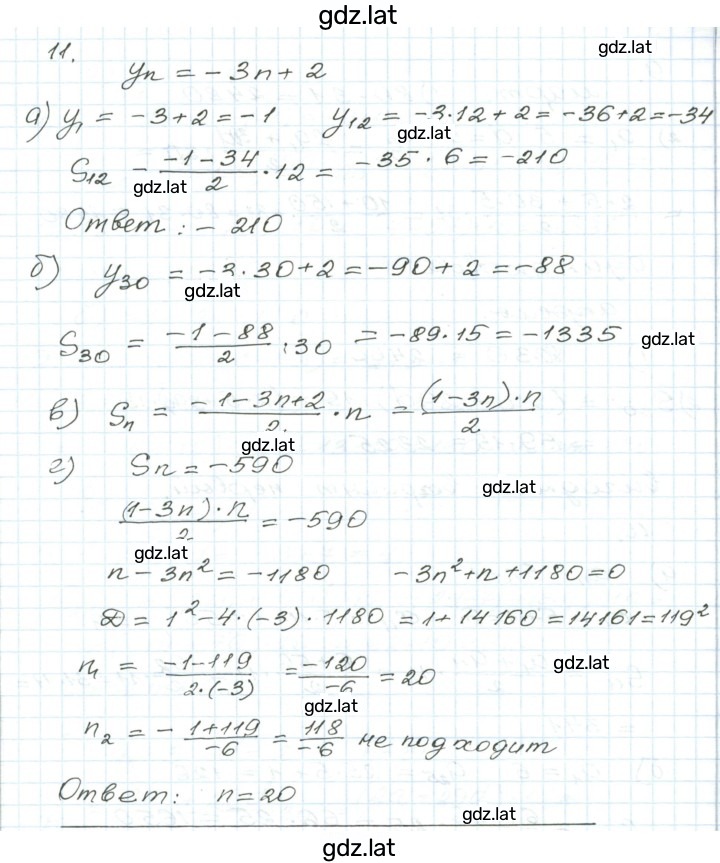 gdz.lat
11.
gdz.lat
yn = -3n + 2
а) y1 = -3+2 = -1 y12 = -3·12 + 2 = -36+2 = -34
gdz.lat
S12 - -1-34/2 · 12 = -35 · 6 = -210
gdz.lat
Ответ: - 210
б) y30 = -3·30+2 = -90+2 = -88
gdz.lat
S30 = -1-88/2 · 30 = -89·15 = -1335
gdz.lat
в) Sn = -1-3n+2/2 · n = (1-3n)·n/2
gdz.lat
г) Sn = -590
gdz.lat
(1-3n)·n/2 = -590
gdz.lat
n - 3n² = -1180 -3n²+n+1180=0
D = 1²-4·(-3)·1180 = 1+14160 = 14161 = 119²
n1 = -1-119/2·(-3) = -120/-6 = 20
gdz.lat
gdz.lat
n2 = - 1+119/-6 = 118/-6 не подходит
Ответ: n=20
gdz.lat
gdz.lat